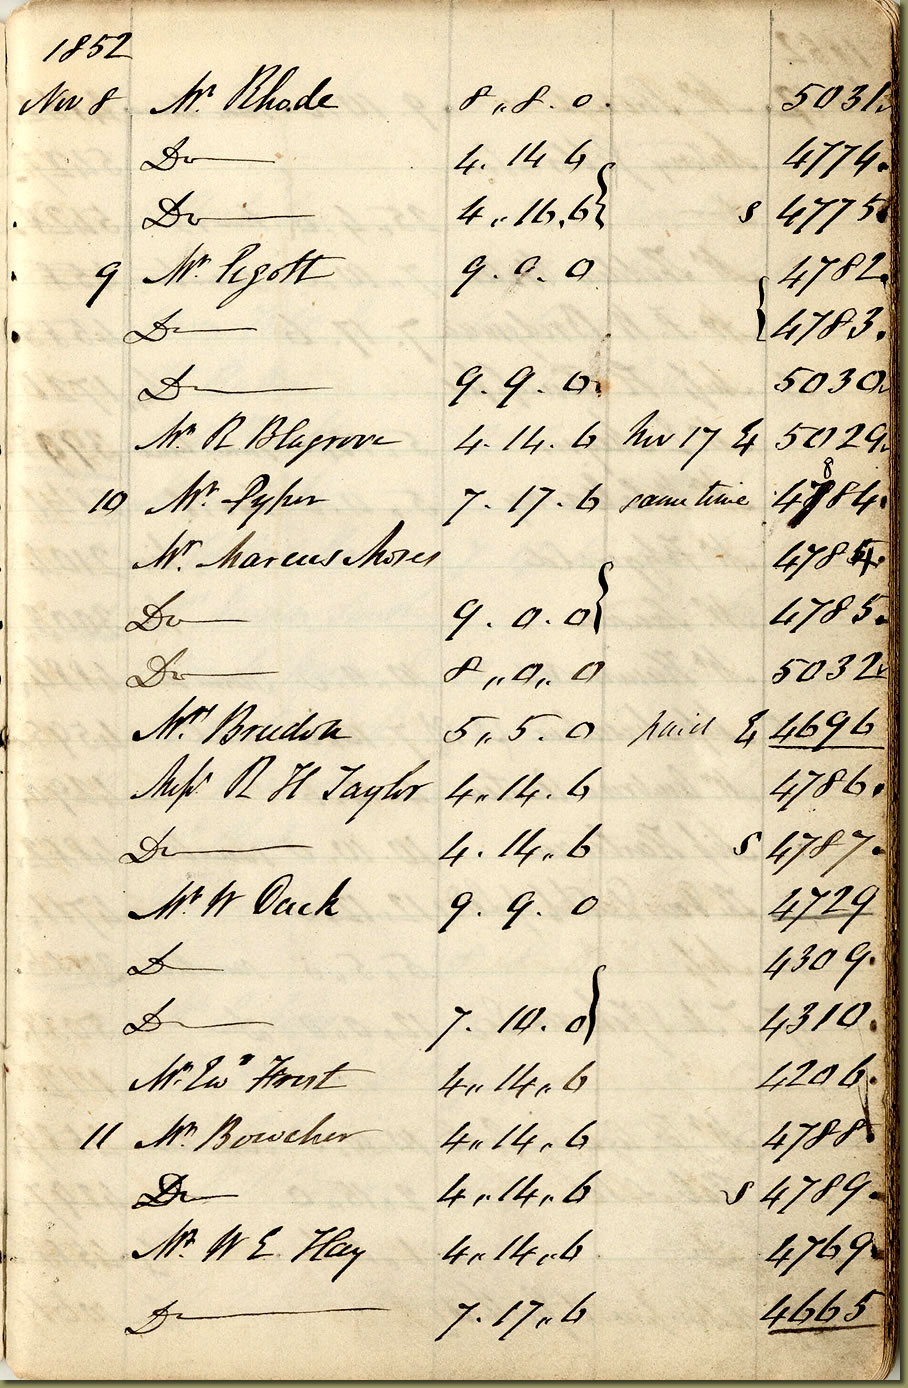 1852
Nov 8 Mr Rhode 8 ,, 8 . 0 . 5031.
Do 4 . 14 6 4774.
Do 4 ,, 16 . 6 } s 4775
9 Mr Pigott 9 . 0 . 0 4782.
Do { 4783.
Do 9 . 9 . 0 . 5030.
Mr R Blagrove 4 . 14 . 6 Nov 17 & 5029.
8
10 Mr Pyper 7 . 17 . 6 same time 4784.
Mr. Marcus Moses 4784.
Do 9 . 0 . 0 } 4785.
Do 8 ,, 0 ,, 0 5032.
Mrs Breedon 5 ,, 5 . 0 paid & 4696
Messrs R H Taylor 4 ,, 14 . 6 4786.
Do 4 . 14 ,, 6 s 4787.
Mr W Dack 9 . 9 . 0 4729
D 4309.
D 7 . 10 . 0 } 4310.
Mr. Edwd Frost 4 ,, 14 ,, 6 4206.
11 Mr Bowcher 4 ,, 14 ,, 6 4788.
Do 4 ,, 14 ,, 6 s 4789.
Mr W E Hay 4 ,, 14 ,, 6 4769.
D 7 . 17 ,, 6 4665